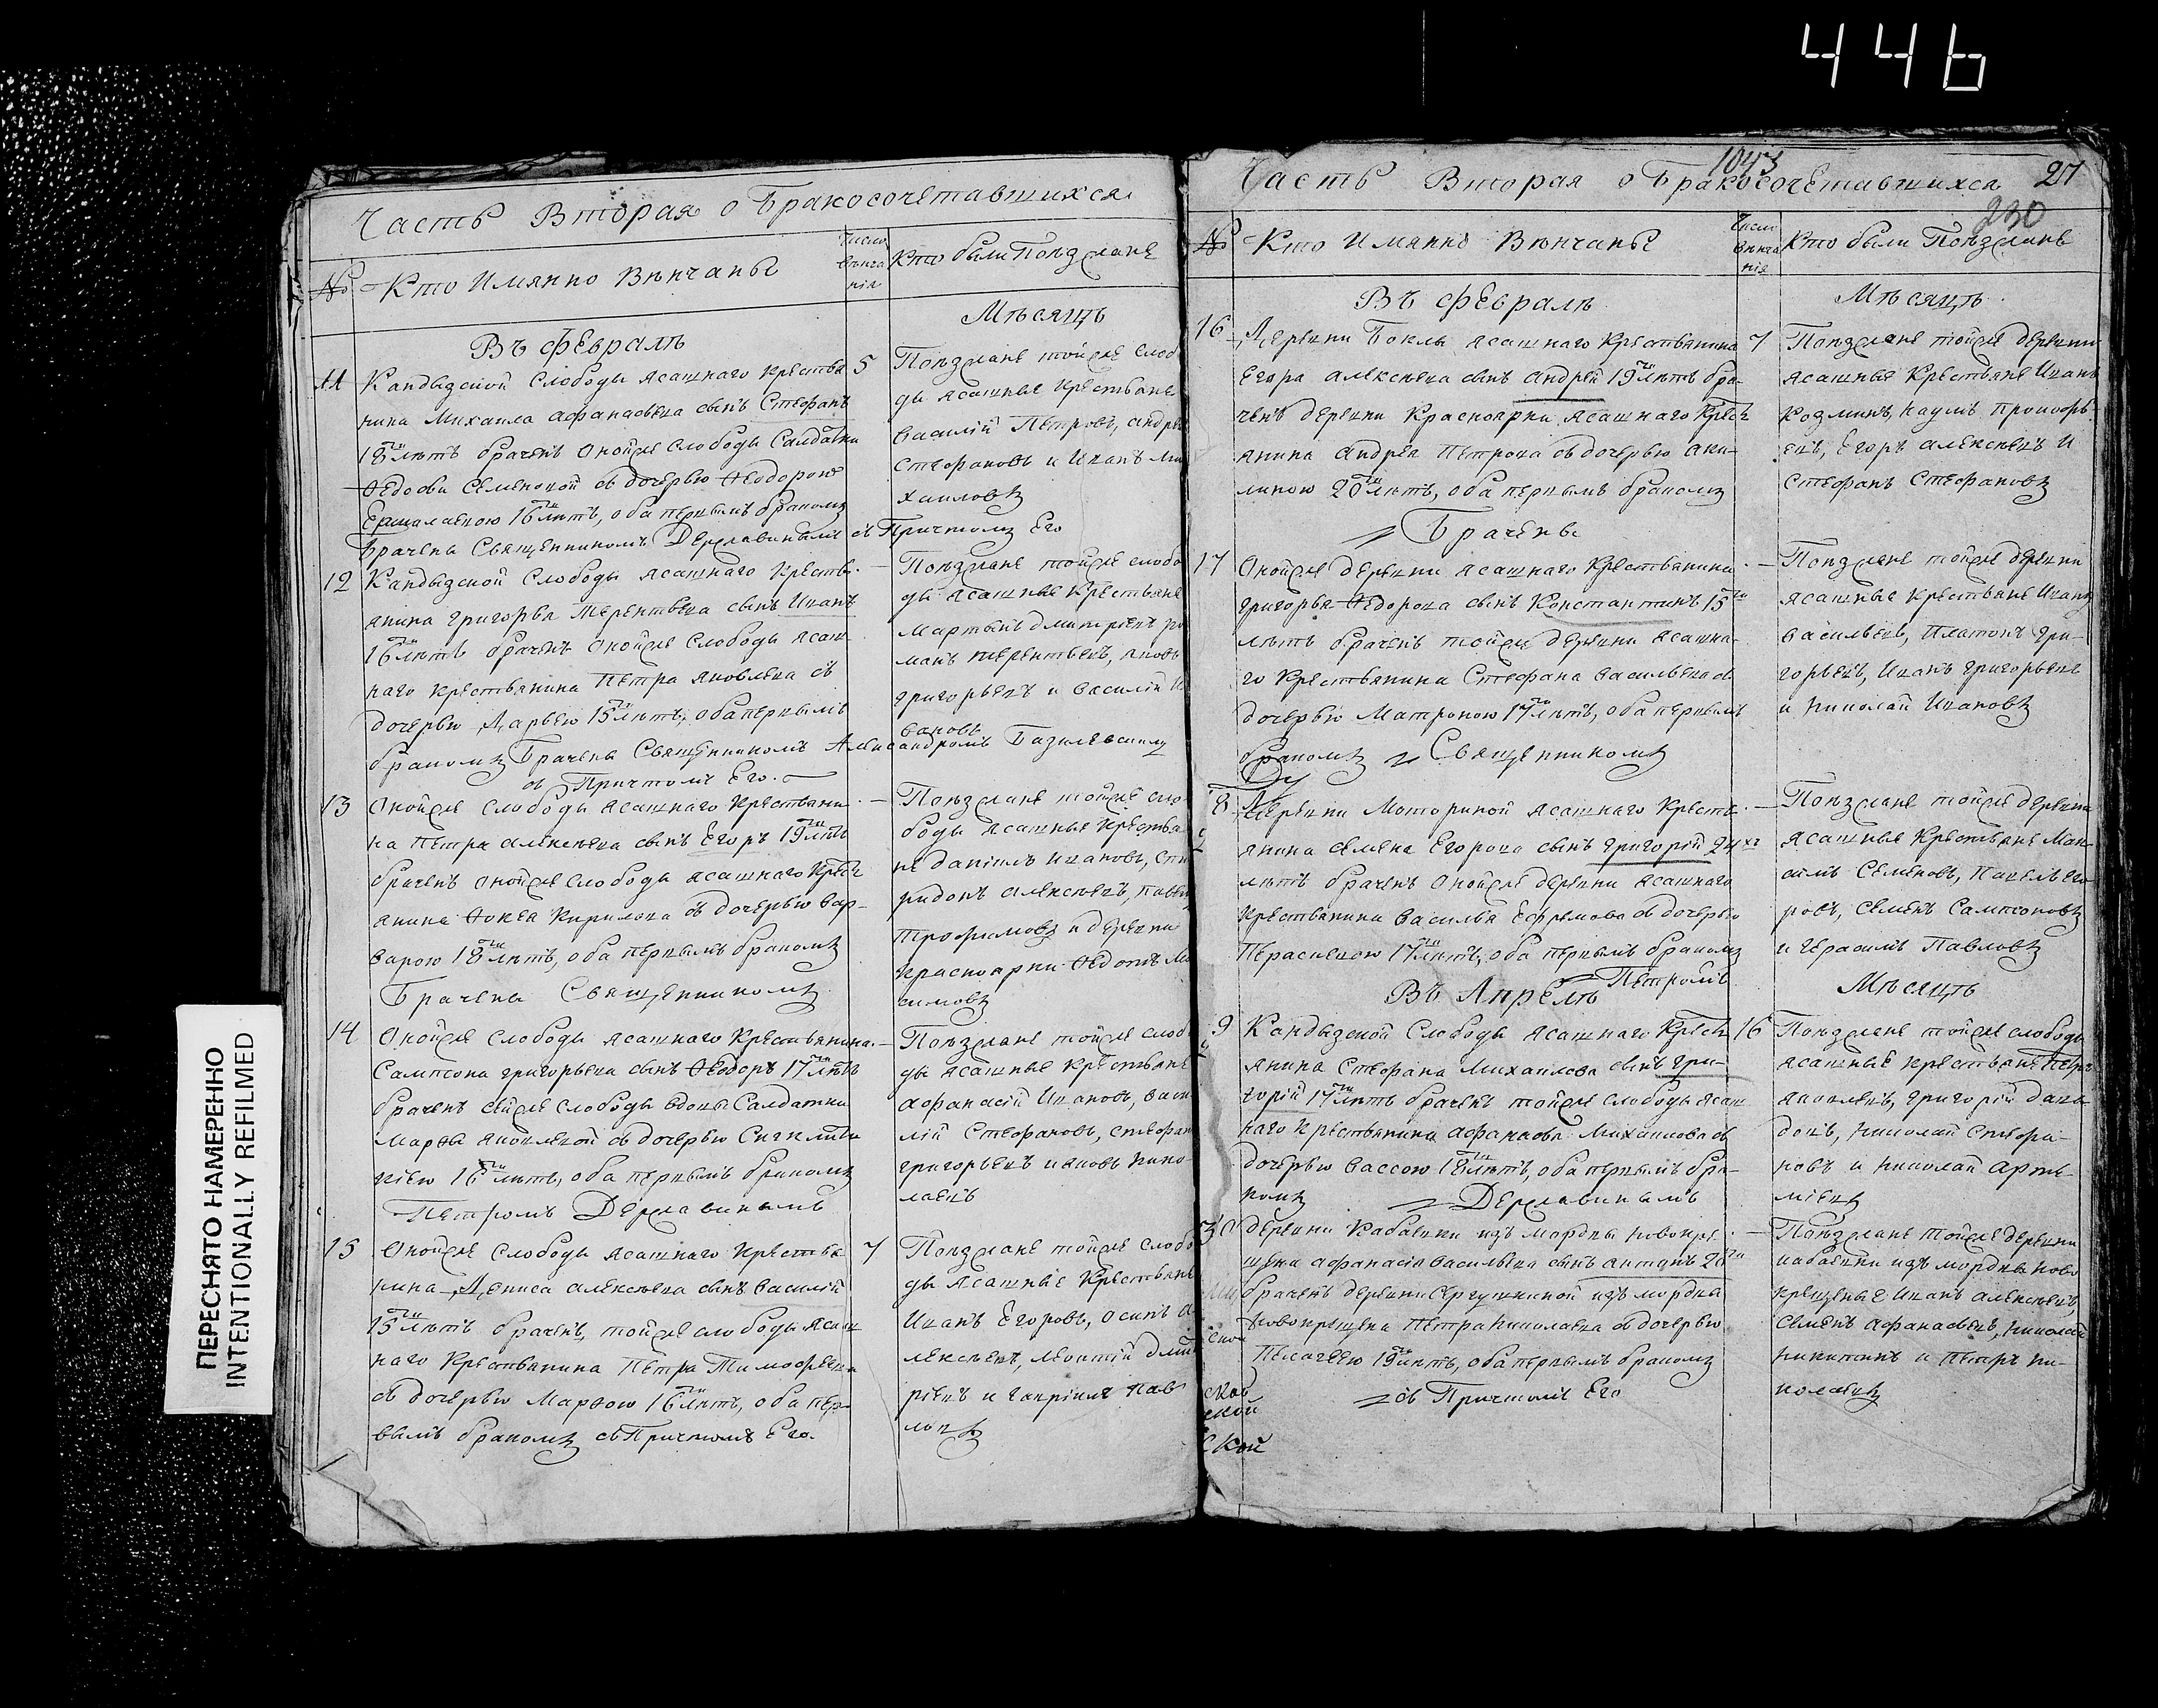 446
Часть Вторая о Бракосочетавшихся
№
Кто Имянно Вѣнчаны
Число вѣнча нія
Кто были Поѣзжанѣ
Въ февралѣ
Мѣсяцѣ
11
Кандызской Слободы ясашнаго крестья
нина Михаила афанасьева сынъ Стефанъ
18ти лѣтъ браченъ оной же слободы Салдатки
Ѳедосьи Семеновой съ дочерью Ѳеодорою
Ермолаевою 16ти лѣтъ, оба первымъ бракомъ
Брачены Священникомъ Державинымъ съ Притчомъ Его
5
Поѣзжане той же слобо
ды ясашные крестьяне
Василій Петровъ, андре
Стефановъ и Иванъ Ми
хаиловъ
12
Кандызской Слободы ясашнаго кресть
янина григорья терентьева сынъ Иванъ
16ти лѣтъ браченъ оной же слободы ясаш
наго крестьянина Петра яковлева съ
дочерью Дарьею 15ти лѣтъ, оба первымъ
бракомъ Брачены Священникомъ Александромъ Базилевскимъ
съ Притчомъ Его.
Поѣзжане той же слобо
ды ясашные крестьяне
Мартынъ дмитріевъ ро
манъ терентьевъ, яковъ
григорьевъ и Василій И
вановъ
13
Оной же слободы ясашнаго крестьяни
на Петра алексѣева сынъ Егоръ 19ти лѣтъ
браченъ оной же слободы ясашнаго крест
янина Ѳокея Кирилова съ дочерью вар-
варою 18ти лѣтъ, оба первымъ бракомъ
Брачены Священникомъ
Поѣзжане той же сло
боды ясашные крестья
не даніилъ Ивановъ, спи
ридонъ алексѣевъ, павел
трофимовъ и деревни
красноярки Ѳедотъ Ма
симовъ
14
Оной же Слободы ясашнаго крестьянина
Сампсона григорьева сынъ Ѳеодоръ 17ти лѣтъ
браченъ сей же слободы вдовы Салдатки
Марѳы яковлевой съ дочерью Сигклити
кіею 16ти лѣтъ, оба первымъ бракомъ
Петромъ Державинымъ
Поѣзжане той же слобо
ды ясашные крестьяне
афанасій Ивановъ, васи
лій Стефановъ, стефан
григорьевъ и яковъ нико-
лаевъ
15
Оной же слободы ясашнаго крестья
нина Дениса алексѣева сынъ Василій
15ти лѣтъ браченъ, той же слободы ясаш
наго крестьянина Петра Тимофеева
съ дочерью Марѳою 16ти лѣтъ, оба пер-
вымъ бракомъ съ Притчомъ Его.
7
Поѣзжане той же слобо
ды ясашные крестьяне
Иванъ Егоровъ, осипъ а
лексѣевъ, леонтій дмит
ріевъ и гавріилъ пав
ловъ
1043
27
230
Часть Вторая о Бракосочетавшихся
№
Кто Имянно Вѣнчаны
Число вѣнча нія
Кто были Поѣзжанѣ
Въ февралѣ
Мѣсяцѣ
16
Деревни Боклы ясашнаго крестьянина
Егора алексѣева сынъ андрей 19ти лѣтъ бра-
ченъ деревни Красноярки ясашнаго крест
янина андрея Петрова съ дочерью аки-
линою 20ти лѣтъ, оба первымъ бракомъ
Брачены
7
Поѣзжане той же деревни
ясашные крестьяне Иванъ
козминъ, наумъ прокофь-
евъ, Егоръ алексѣевъ и
Стефанъ Стефановъ
17
Оной же деревни ясашнаго крестьянина
григорья Ѳедорова сынъ Константинъ 15ти
лѣтъ браченъ той же деревни ясашна-
го крестьянина Стефана васильева съ
дочерью Матроною 17ти лѣтъ, оба первымъ
бракомъ Священникомъ
Поѣзжане той же деревни
ясашные крестьяне Иванъ
васильевъ, Платонъ гри-
горьевъ, Иванъ григорьевъ
и николай Ивановъ
8
Деревни Моториной ясашнаго кресть
янина семена Егорова сынъ григорій 24хъ
лѣтъ браченъ оной же деревни ясашнаго
крестьянина василья Ефремова съ дочерью
Парасковьею 17ти лѣтъ, оба первымъ бракомъ
Петромъ
Поѣзжане той же деревни
ясашные крестьяне Мак-
симъ Семеновъ, Павелъ его
ровъ, семенъ Сампсоновъ
и герасимъ Павловъ
Въ Апрелѣ
Мѣсяцѣ
9
Кандызской Слободы ясашнаго крест
янина Стефана Михаилова сынъ гри-
горій 17ти лѣтъ браченъ той же слободы ясаш
наго крестьянина афанасья Михаилова съ
дочерью вассою 18ти лѣтъ, оба первымъ бра-
комъ Державинымъ
16
Поѣзжане той же слободы
ясашные крестьяне Петръ
яковлевъ, григорій давы
довъ, николай стефа-
новъ и николай арте-
міевъ
деревни кабаевки изъ мордвы новокре
щена афанасія васильева сынъ антонъ 20ти
браченъ деревни Сергушкиной изъ мордвы
новокрещена Петра николаева съ дочерью
Пелагеею 19ти лѣтъ, оба первымъ бракомъ
съ Притчомъ Его
Поѣзжане той же деревни
кабаевки изъ мордвы ново
крещеные Иванъ алексѣевъ,
семенъ афанасьевъ, николай
никитинъ и петръ ни-
колаевъ
ской
ской
ПЕРЕСНЯТО НАМЕРЕННО
INTENTIONALLY REFILMED